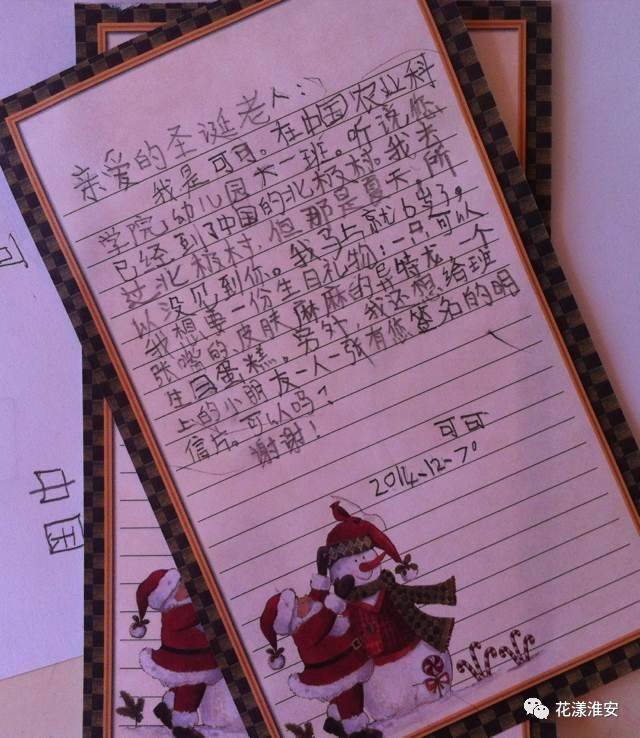 亲爱的圣诞老人：
我是可可。在中国农业科
学院幼儿园大一班。听说您
已经到了中国的北极村。我去
过北极村，但那是夏天，所
以没见到你。我马上就6岁了。
我想要一份生日礼物：一只可以
张嘴的皮肤麻麻的异特龙，一个
生日蛋糕。另外，我还想给班
上的小朋友一人一张有您签名的明
信片。可以吗？
谢谢！
可可
2014-12-7。
可
中国
花漾淮安